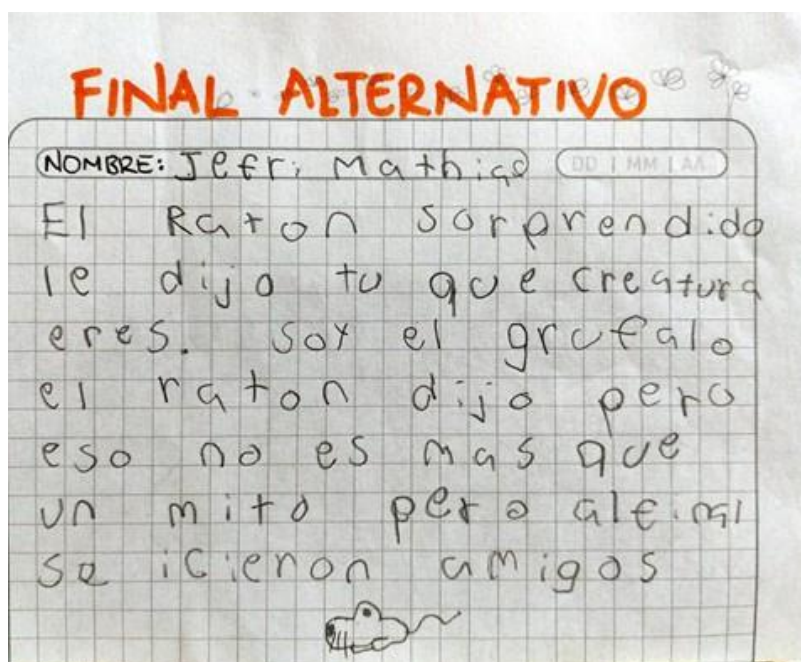 FINAL ALTERNATIVO
NOMBRE: Jefri Mathias DD | MM | AA
El Raton sorprendido
le dijo tu que creatura
eres. soy el grufalo
el raton dijo pero
eso no es mas que
un mito pero alfinal
se icieron amigos